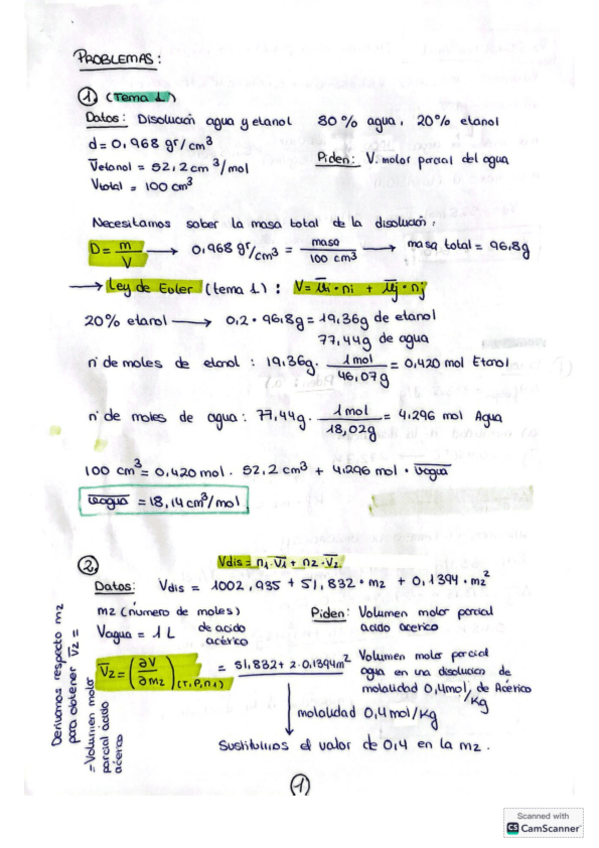 PROBLEMAS:
① (Tema 1)
Datos: Disolución agua y etanol 80% agua, 20% etanol
d = 0,968 gr/cm³
V̅etanol = 52,2 cm³/mol Piden: V. molar parcial del agua
Vtotal = 100 cm³
Necesitamos saber la masa total de la disolución.
D = m/V → 0,968 gr/cm³ = masa/100 cm³ → masa total = 96,8g
→ Ley de Euler (tema 1): V = u̅i · ni + u̅j · nj
20% etanol → 0,2 · 96,8g = 19,36g de etanol
77,44g de agua
nº de moles de etanol: 19,36g · 1mol/46,07g = 0,420 mol Etanol
nº de moles de agua: 77,44g · 1mol/18,02g = 4,296 mol Agua
100 cm³ = 0,420 mol · 52,2 cm³ + 4,296 mol · V̅agua
V̅agua = 18,14 cm³/mol
② Vdis = n1 · V̅1 + n2 · V̅2
Datos: Vdis = 1002,935 + 51,832 · m2 + 0,1394 · m2²
m2 (número de moles) de acido acético
Piden: Volumen molar parcial acido acetico
Vagua = 1 L
V̅2 = (∂V/∂m2)(T,P,n1) = 51,832 + 2·0,1394m²
Volumen molar parcial agua en una disolucion de molalidad 0,4mol/kg de Acérico
molalidad 0,4mol/Kg
Sustituimos el valor de 0,4 en la m2.
Derivamos respecto m2
para obtener V̅2 =
= Volumen molar
parcial acido
acético
①
Scanned with
CS CamScanner